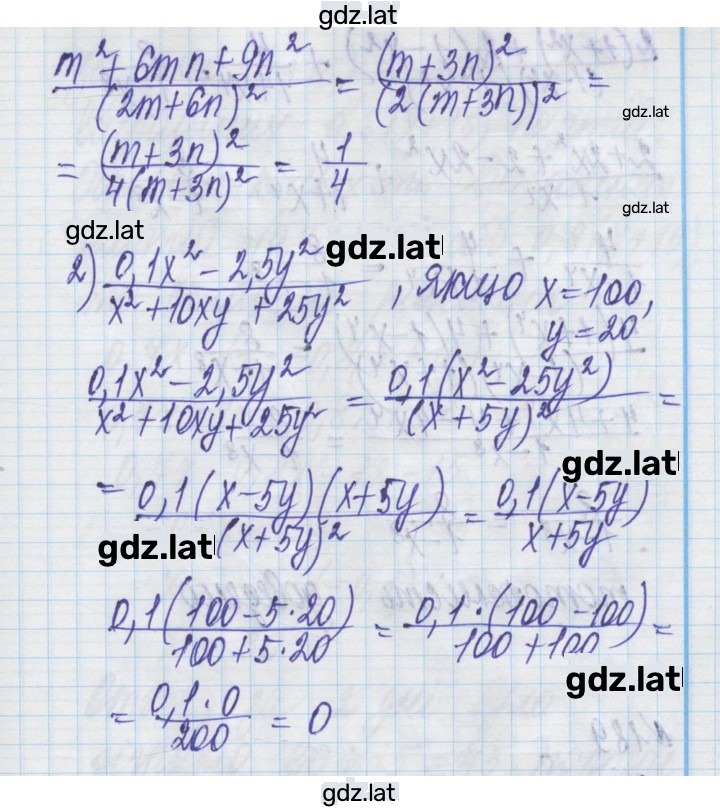 gdz.lat
m² + 6mn + 9n² / (2m+6n)² = (m+3n)² / (2(m+3n))² =
gdz.lat
= (m+3n)² / 4(m+3n)² = 1/4
gdz.lat
gdz.lat
gdz.lat
2) 0,1x² - 2,5y² / x² + 10xy + 25y² , якщо x = 100,
y = 20
0,1x² - 2,5y² / x² + 10xy + 25y² = 0,1(x² - 25y²) / (x + 5y)² =
gdz.lat
= 0,1(x - 5y)(x + 5y) / (x + 5y)² = 0,1(x - 5y) / x + 5y
gdz.lat
0,1(100 - 5·20) / 100 + 5·20 = 0,1·(100 - 100) / 100 + 100 =
gdz.lat
= 0,1·0 / 200 = 0
gdz.lat